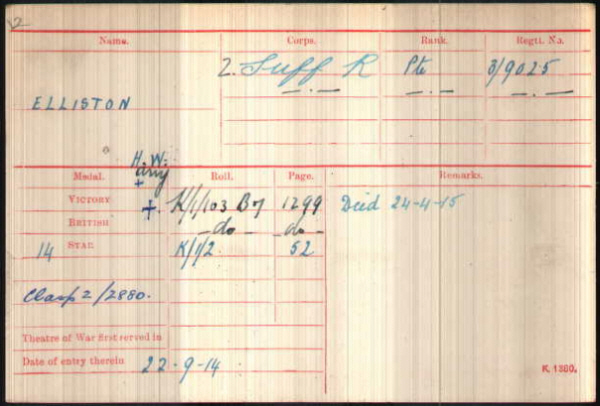 2
Name. Corps. Rank. Regtl. No.
2. Suff R Pte 3/9025
— . — — . — — . —
ELLISTON
H. W.
arry
Medal. Roll. Page. Remarks.
VICTORY + K/1/103 B7 1299 Died 24-4-15
BRITISH — do — — do —
14 STAR K/1/2. 52
Clasp 2/2880.
Theatre of War first served in
Date of entry therein 22-9-14.
K. 1380.